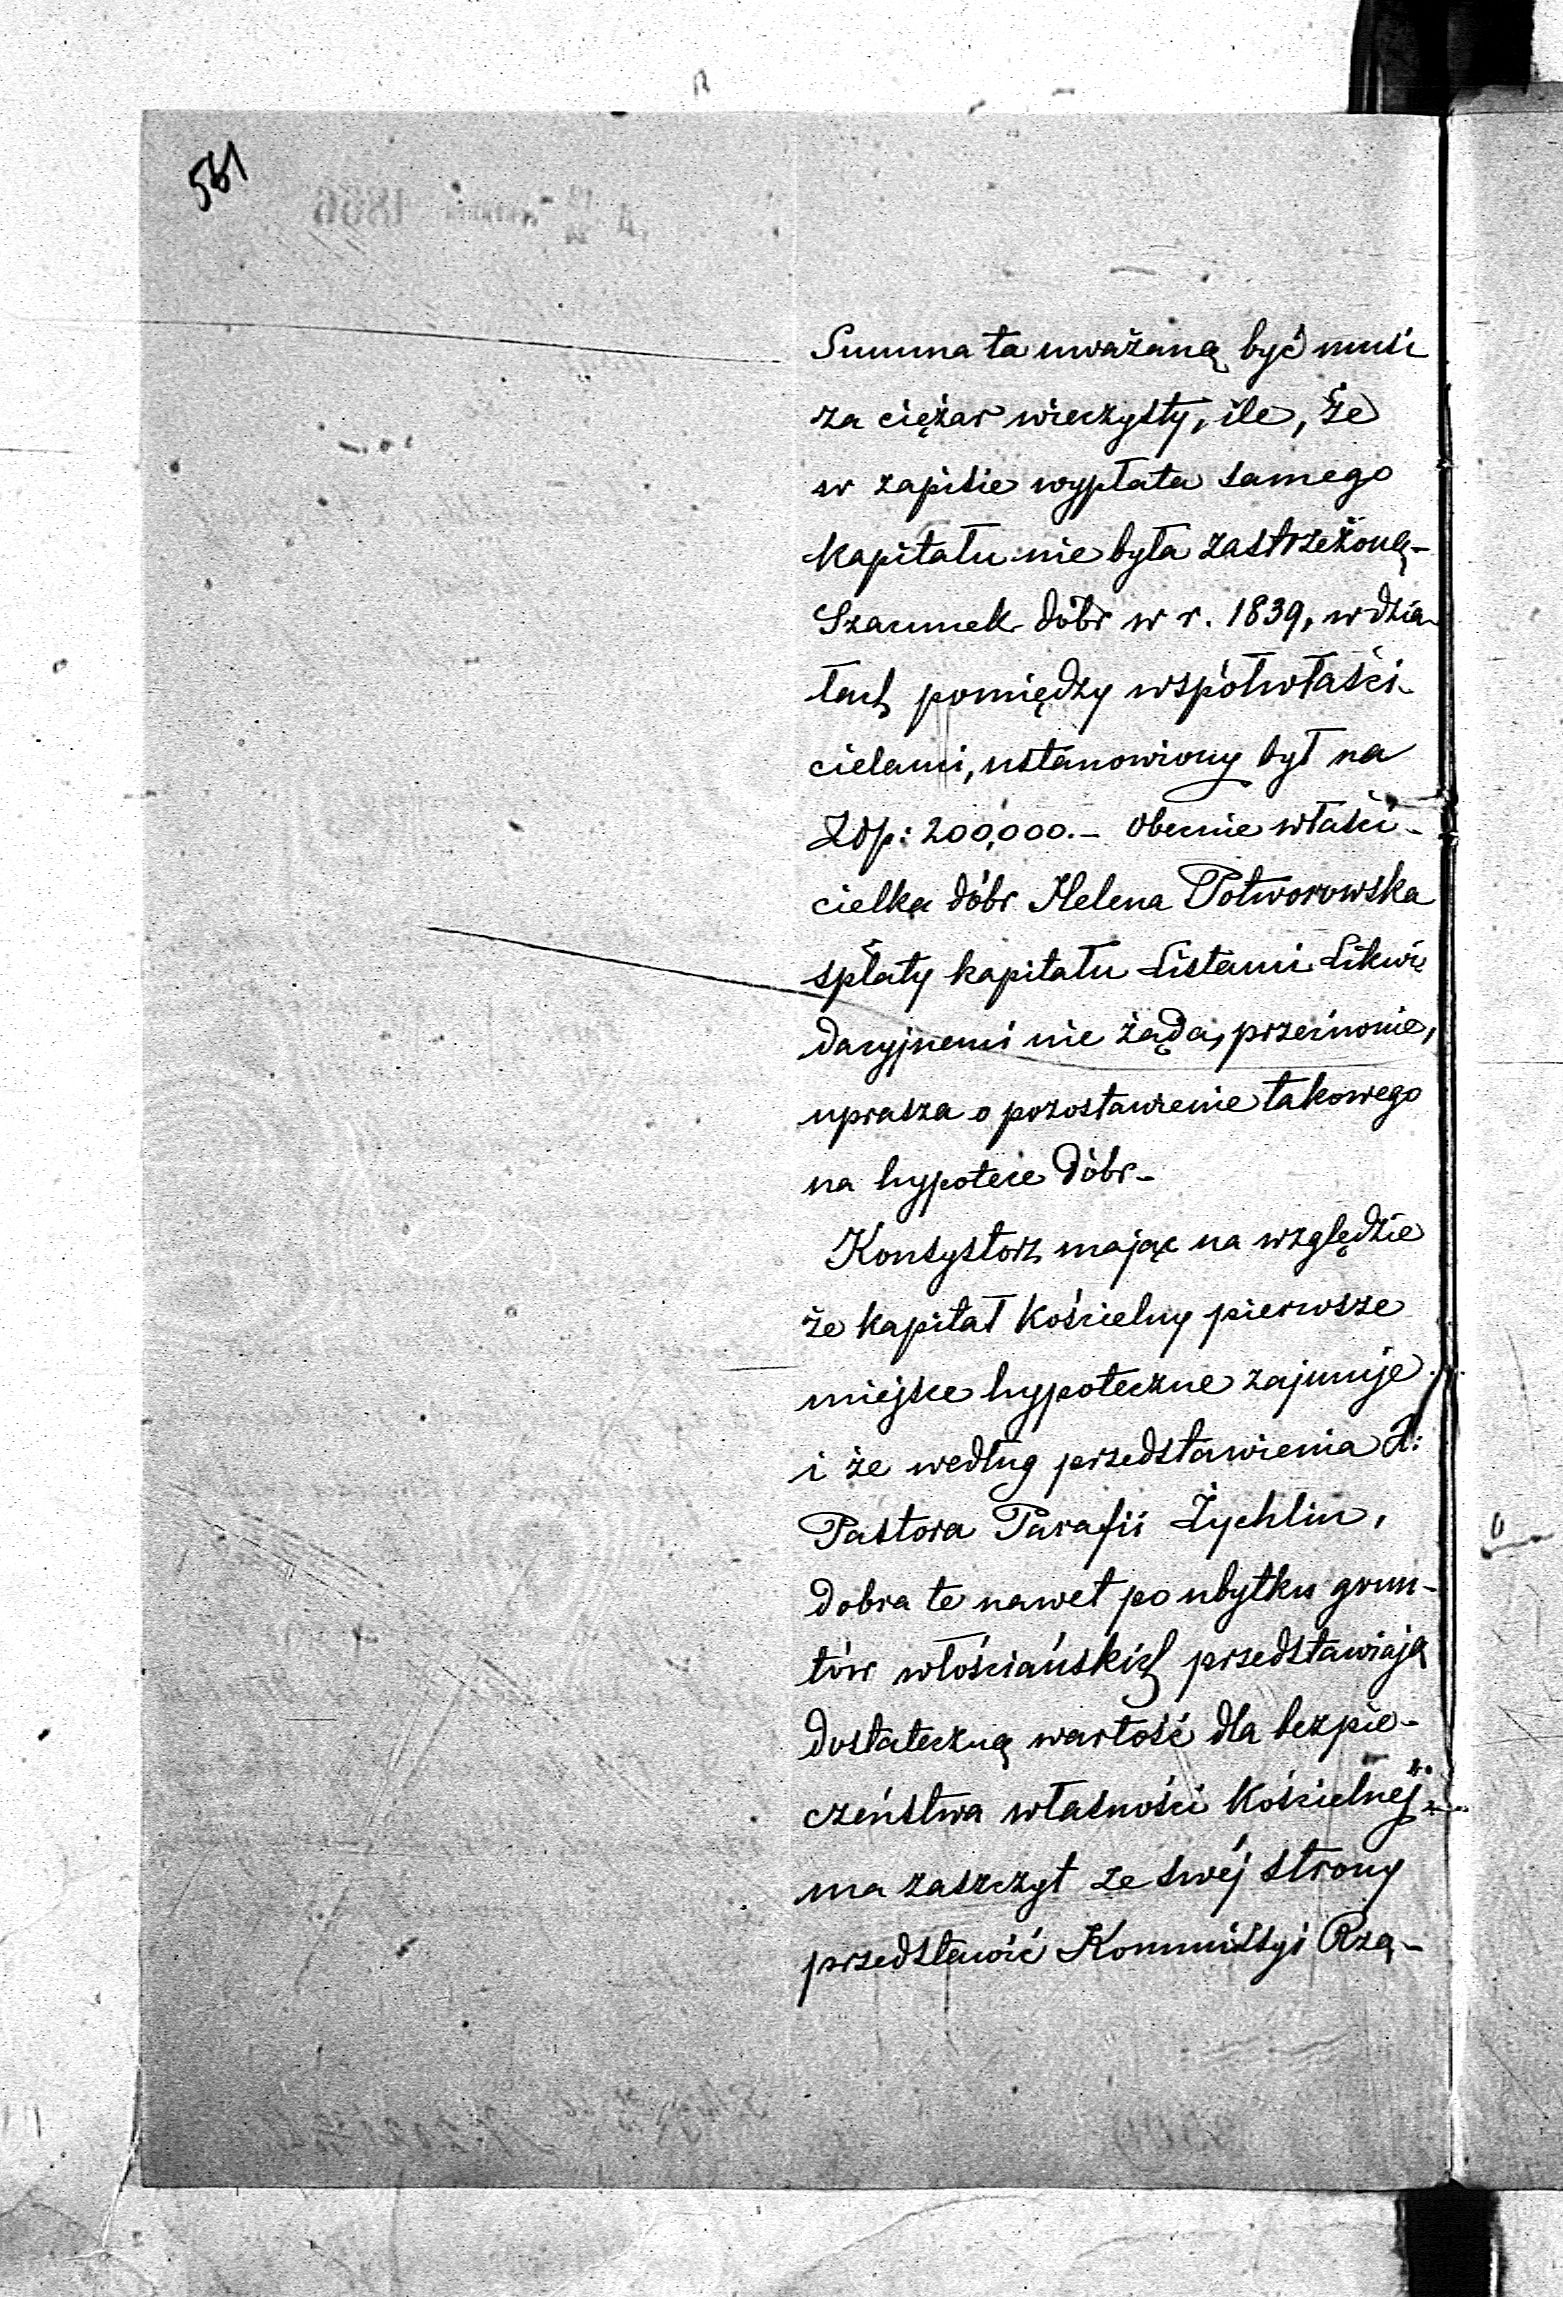 561
Summa ta uważaną być musi
za ciężar wieczysty, ile, że
w zapisie wypłata samego
kapitału nie była zastrzeżoną-
Szacunek dóbr w r. 1839, w dzia-
łach pomiędzy współwłaści-
cielami, ustanowiony był na
Złp: 200,000.- Obecnie właści-
cielka dóbr Helena Potworowska
spłaty kapitału Listami Likwi
dacyjnemi nie żąda, przeciwnie,
uprasza o pozostawienie takowego
na hypotece dóbr-
Konsystorz mając na względzie
że kapitał Kościelny pierwsze
miejsce hypoteczne zajmuje
i że według przedstawienia X:
Pastora Parafii Żychlin,
dobra te nawet po ubytku grun-
tów włościańskich przedstawiają
dostateczną wartość dla bezpie-
czeństwa własności Kościelnej
ma zaszczyt ze swéj strony
przedstawić Kommissyi Rzą-